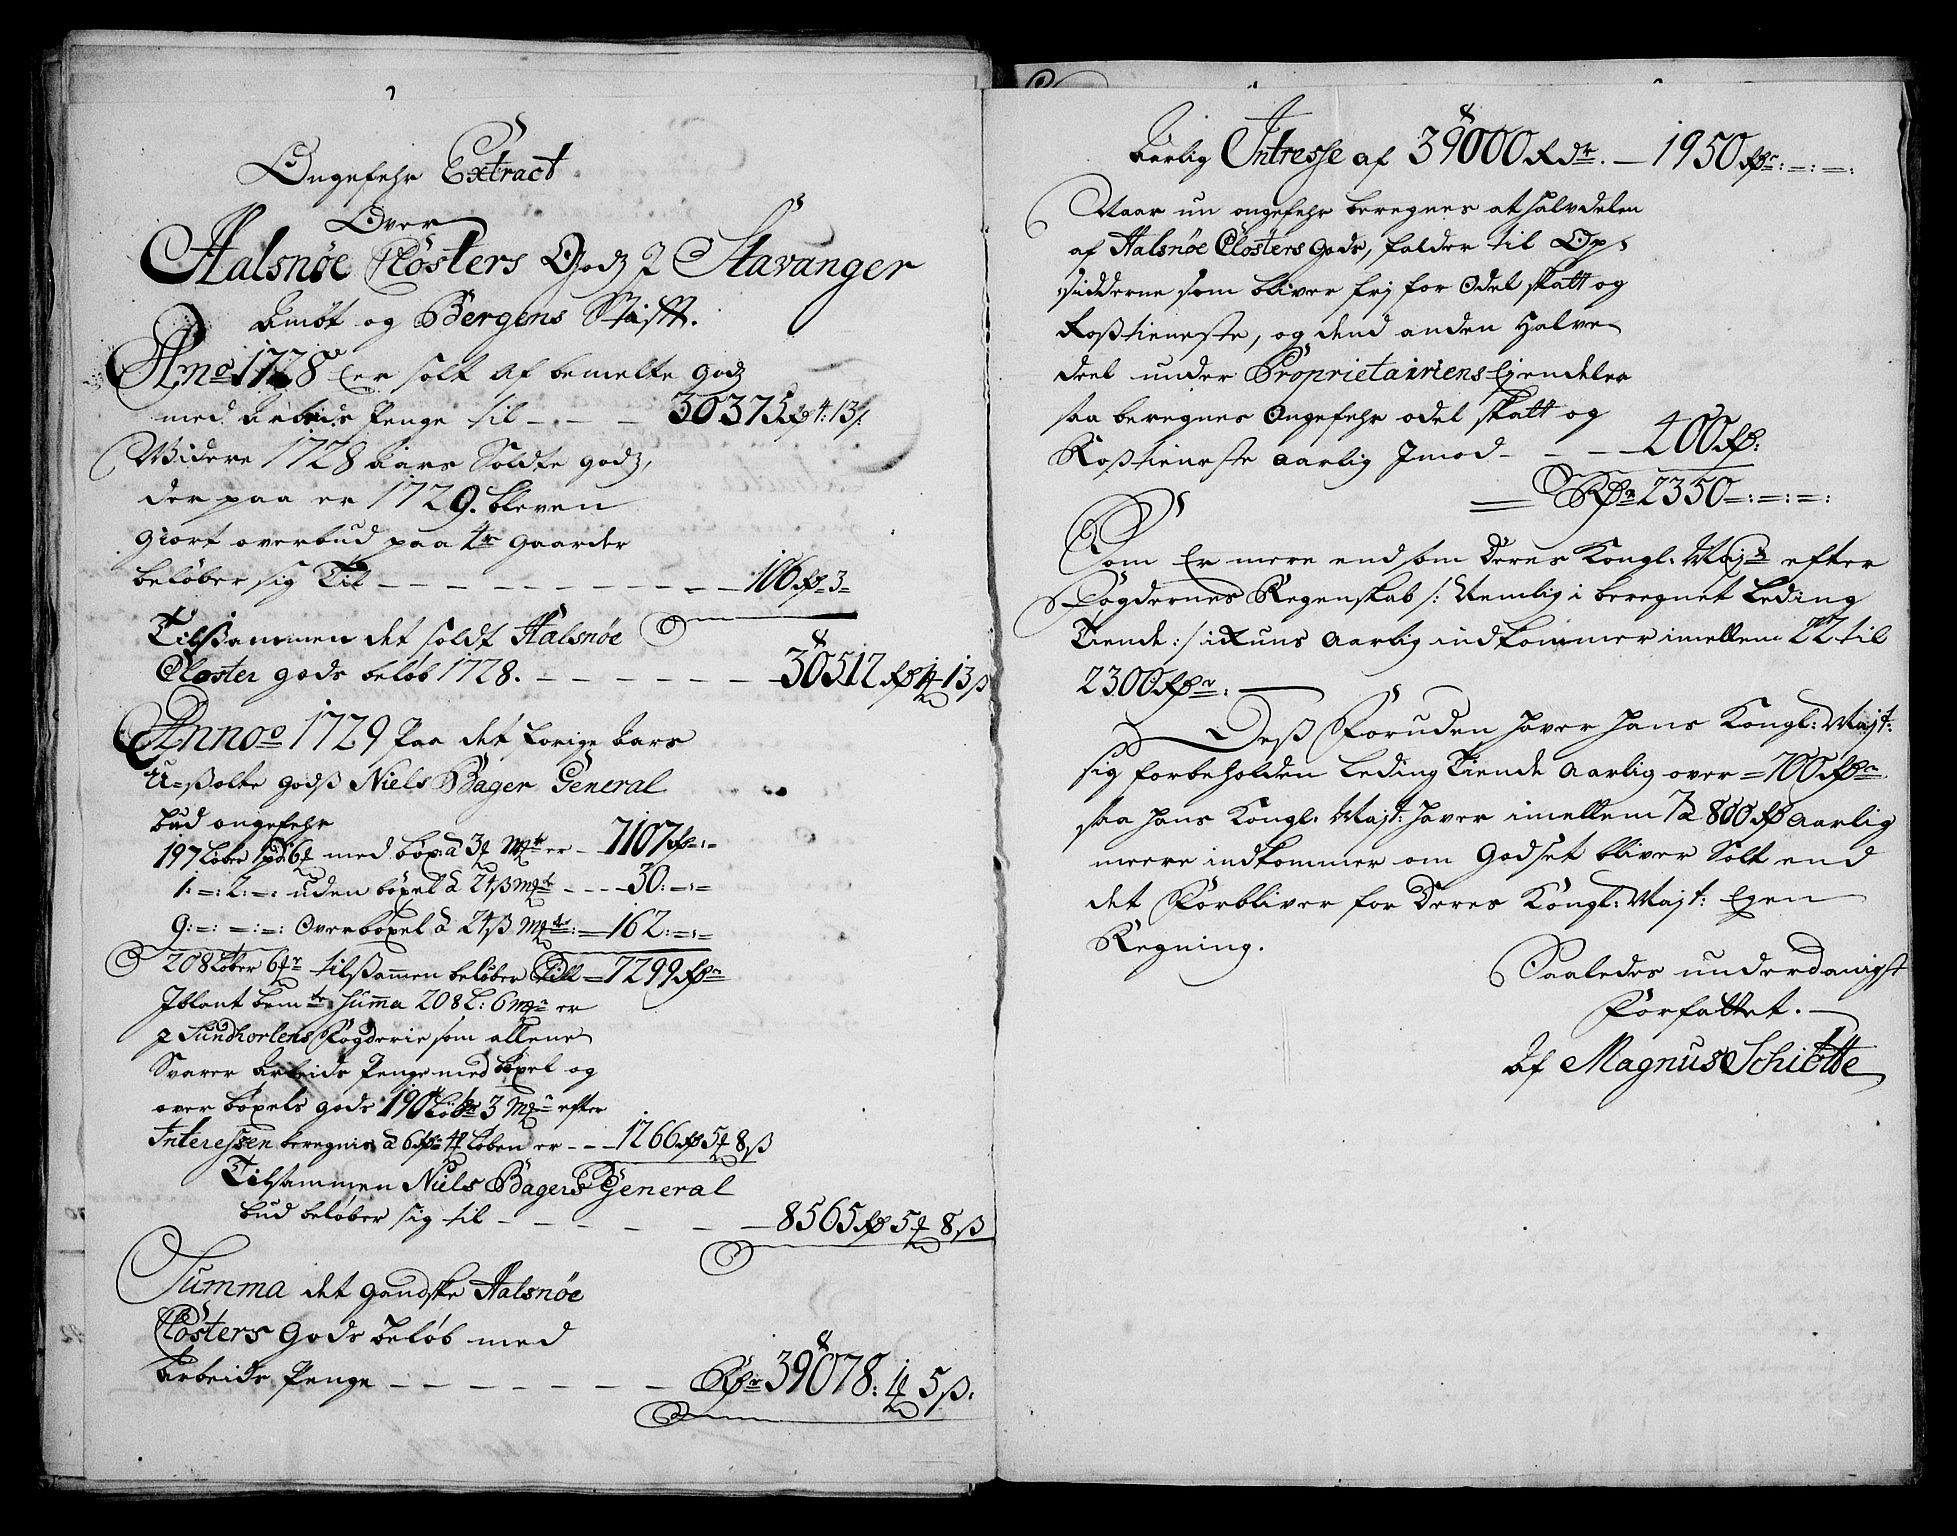 Ongefehr Extract
Over
Halsnøe Closters Godz J Stavanger
Amöt og Bergens Stift.
Ano 1728 Er solt af bemelte godz
med Arbeids Penge til - - - 30375 Rd 4: 13 s.
Widere 1728 Aars Soldte godz,
der paa er 1729. bleven
giort overbud paa 4re gaarder
beløber sig Til - - - - - - - - 106 Rd 3 =
Tilsammen det soldt Halsnøe
Closter gods beløb 1728. - - - - - - 30512 Rd 1 # 13 ß
Annoo 1729 Paa det forige Aars
U=ßolte godß Niels Bager General
bud ongefehr
197 Løber 6 med böx: à 3 er - 7107 Rd =
1: =: 2: =: uden böxel à 24 ß - - - 30: =: =
9: =: =: =: Overböxel à 24 ß = 162: =: =
208 Løber 6 tilßammen beløber Till = 7299 Rdr
Jblant bemte Summa 208 L: 6 er
J Sundhorlens Fogderie som allene
Svarer Arbeids Penge med böxel og
over böxels gods 190 Løber 3 efter
Interessen beregnis à 6 Rdr 4 Løben er - - - 1266 Rd 5 # 8 ß
Tilsammen Niels Bagers General
bud beløber sig til - - - - - - 8565 Rd 5 # 8 ß
Summa det gandske Halsnöe
Closters Gods beløb med
Arbeids Penge - - - - - - - Rdr 39078: 1 # 5 ß.
Aarlig Intresse af 39000 Rdr. - 1950 Rdr: =: =:
Naar nu ongefehr beregnes at halvdelen
af Halsnøe Closters Gods, falder til Op-
sidderne som bliver frj for Odel skatt og
Roßtieneste, og dend anden Halve
deel under Proprietairiens Ejendelee
saa beregnes Ongefehr odel skatt og
Roßtieneste aarlig Jmod - - - - 400 Rd:
Rdr 2350 =: =: =:
Som Er mere end som Deres Kongl: Majts efter
Fogdernes Regenskab /: Nemlig i beregnet Leding
Tiende :/ ikuns Aarlig indkommer imellem 22 til
2300 Rdr:
Deß Foruden haver Hans Kongl: Majt:
sig forbeholden Leding Tiende Aarlig over = 700 Rdr
saa Hans Kongl: Majt: haver imellem 7 à 800 Rd Aarlig
meere indkommer om Godset bliver Solt end
det Forbliver for Deres Kongl: Majt: Egen
Regning.
Saaledes underdanigst
Forfattet.
Af Magnus Schiötte